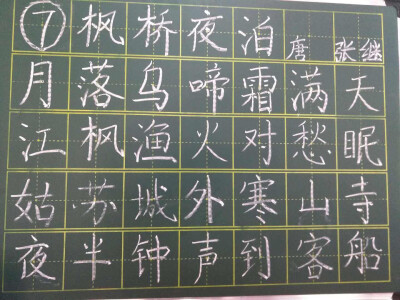 ⑦枫桥夜泊 唐 张继
月落鸟啼霜满天
江枫渔火对愁眠
姑苏城外寒山寺
夜半钟声到客船